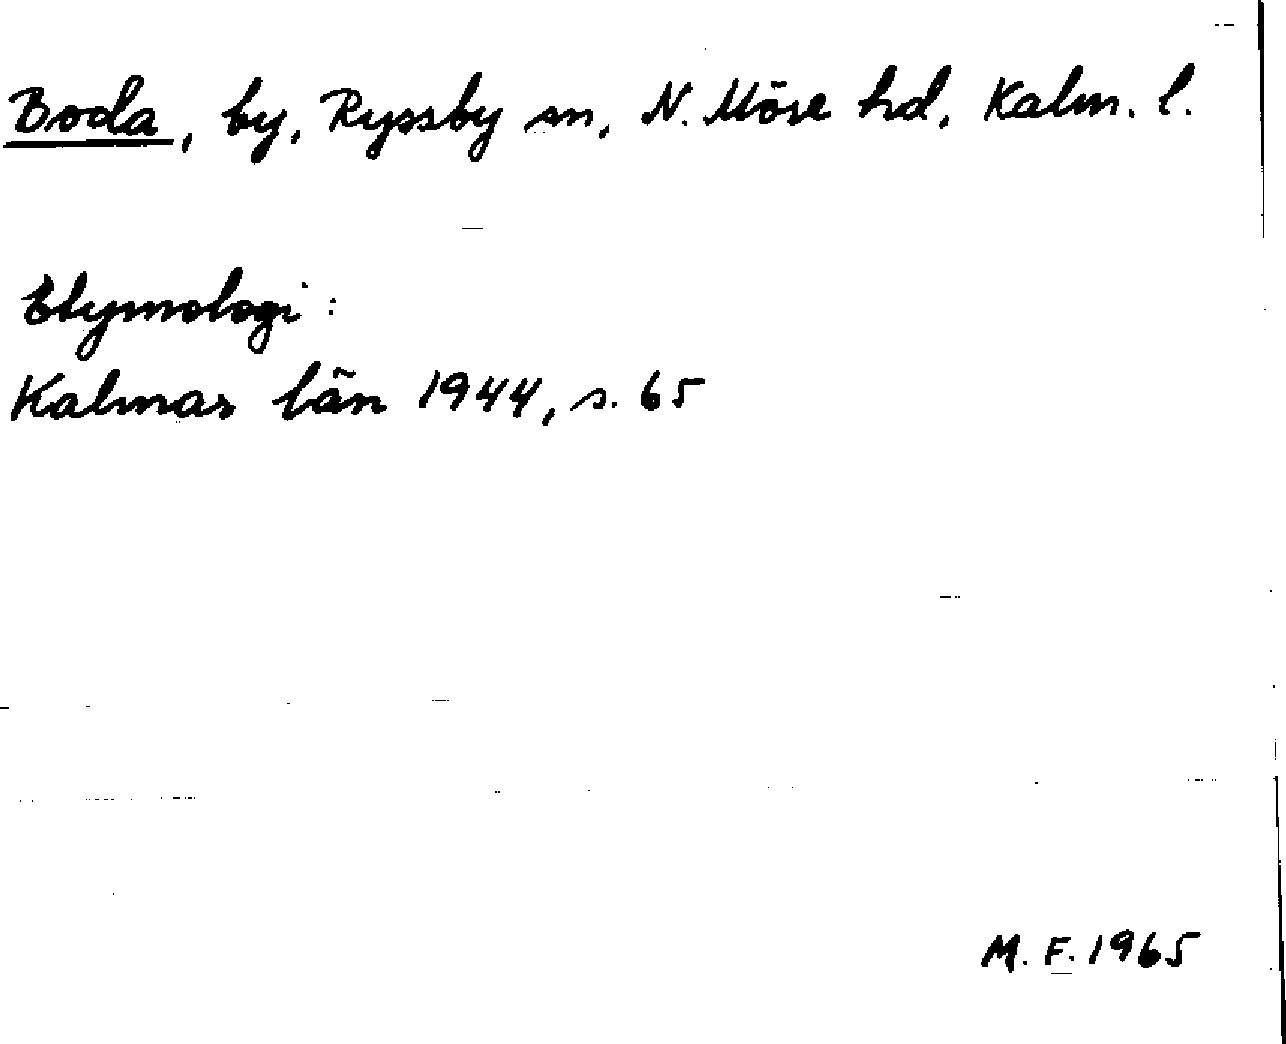 Boda, by, Ryssby sn, N. Möre hd, Kalm. l.
Etymologi:
Kalmar län 1944, s. 65
M. F. 1965